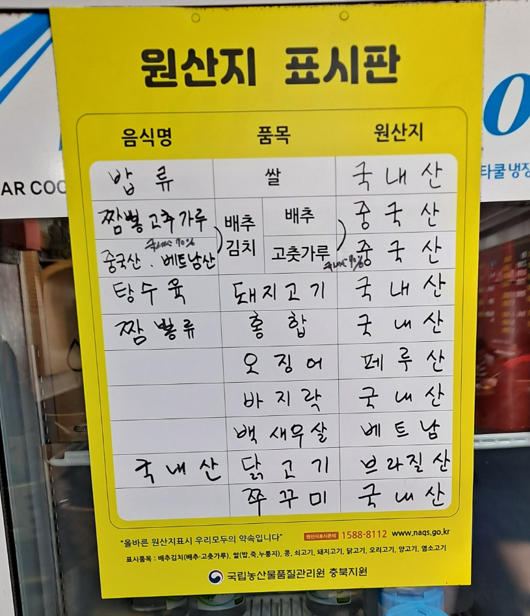 원산지 표시판
음식명 품목 원산지
밥류 쌀 국내산
짬뽕 고추가루 배추김치 배추 중국산
중국산 . 베트남산 고춧가루 중국산
탕수육 돼지고기 국내산
짬뽕류 홍합 국내산
오징어 페루산
바지락 국내산
백새우살 베트남
국내산 닭고기 브라질산
쭈꾸미 국내산
"올바른 원산지표시 우리모두의 약속입니다" 1588-8112 www.naqs.go.kr
표시품목 : 배추김치(배추·고춧가루), 쌀(밥,죽,누룽지), 콩, 쇠고기, 돼지고기, 닭고기, 오리고기, 양고기, 염소고기
국립농산물품질관리원 충북지원
AR COO
타쿨 냉장